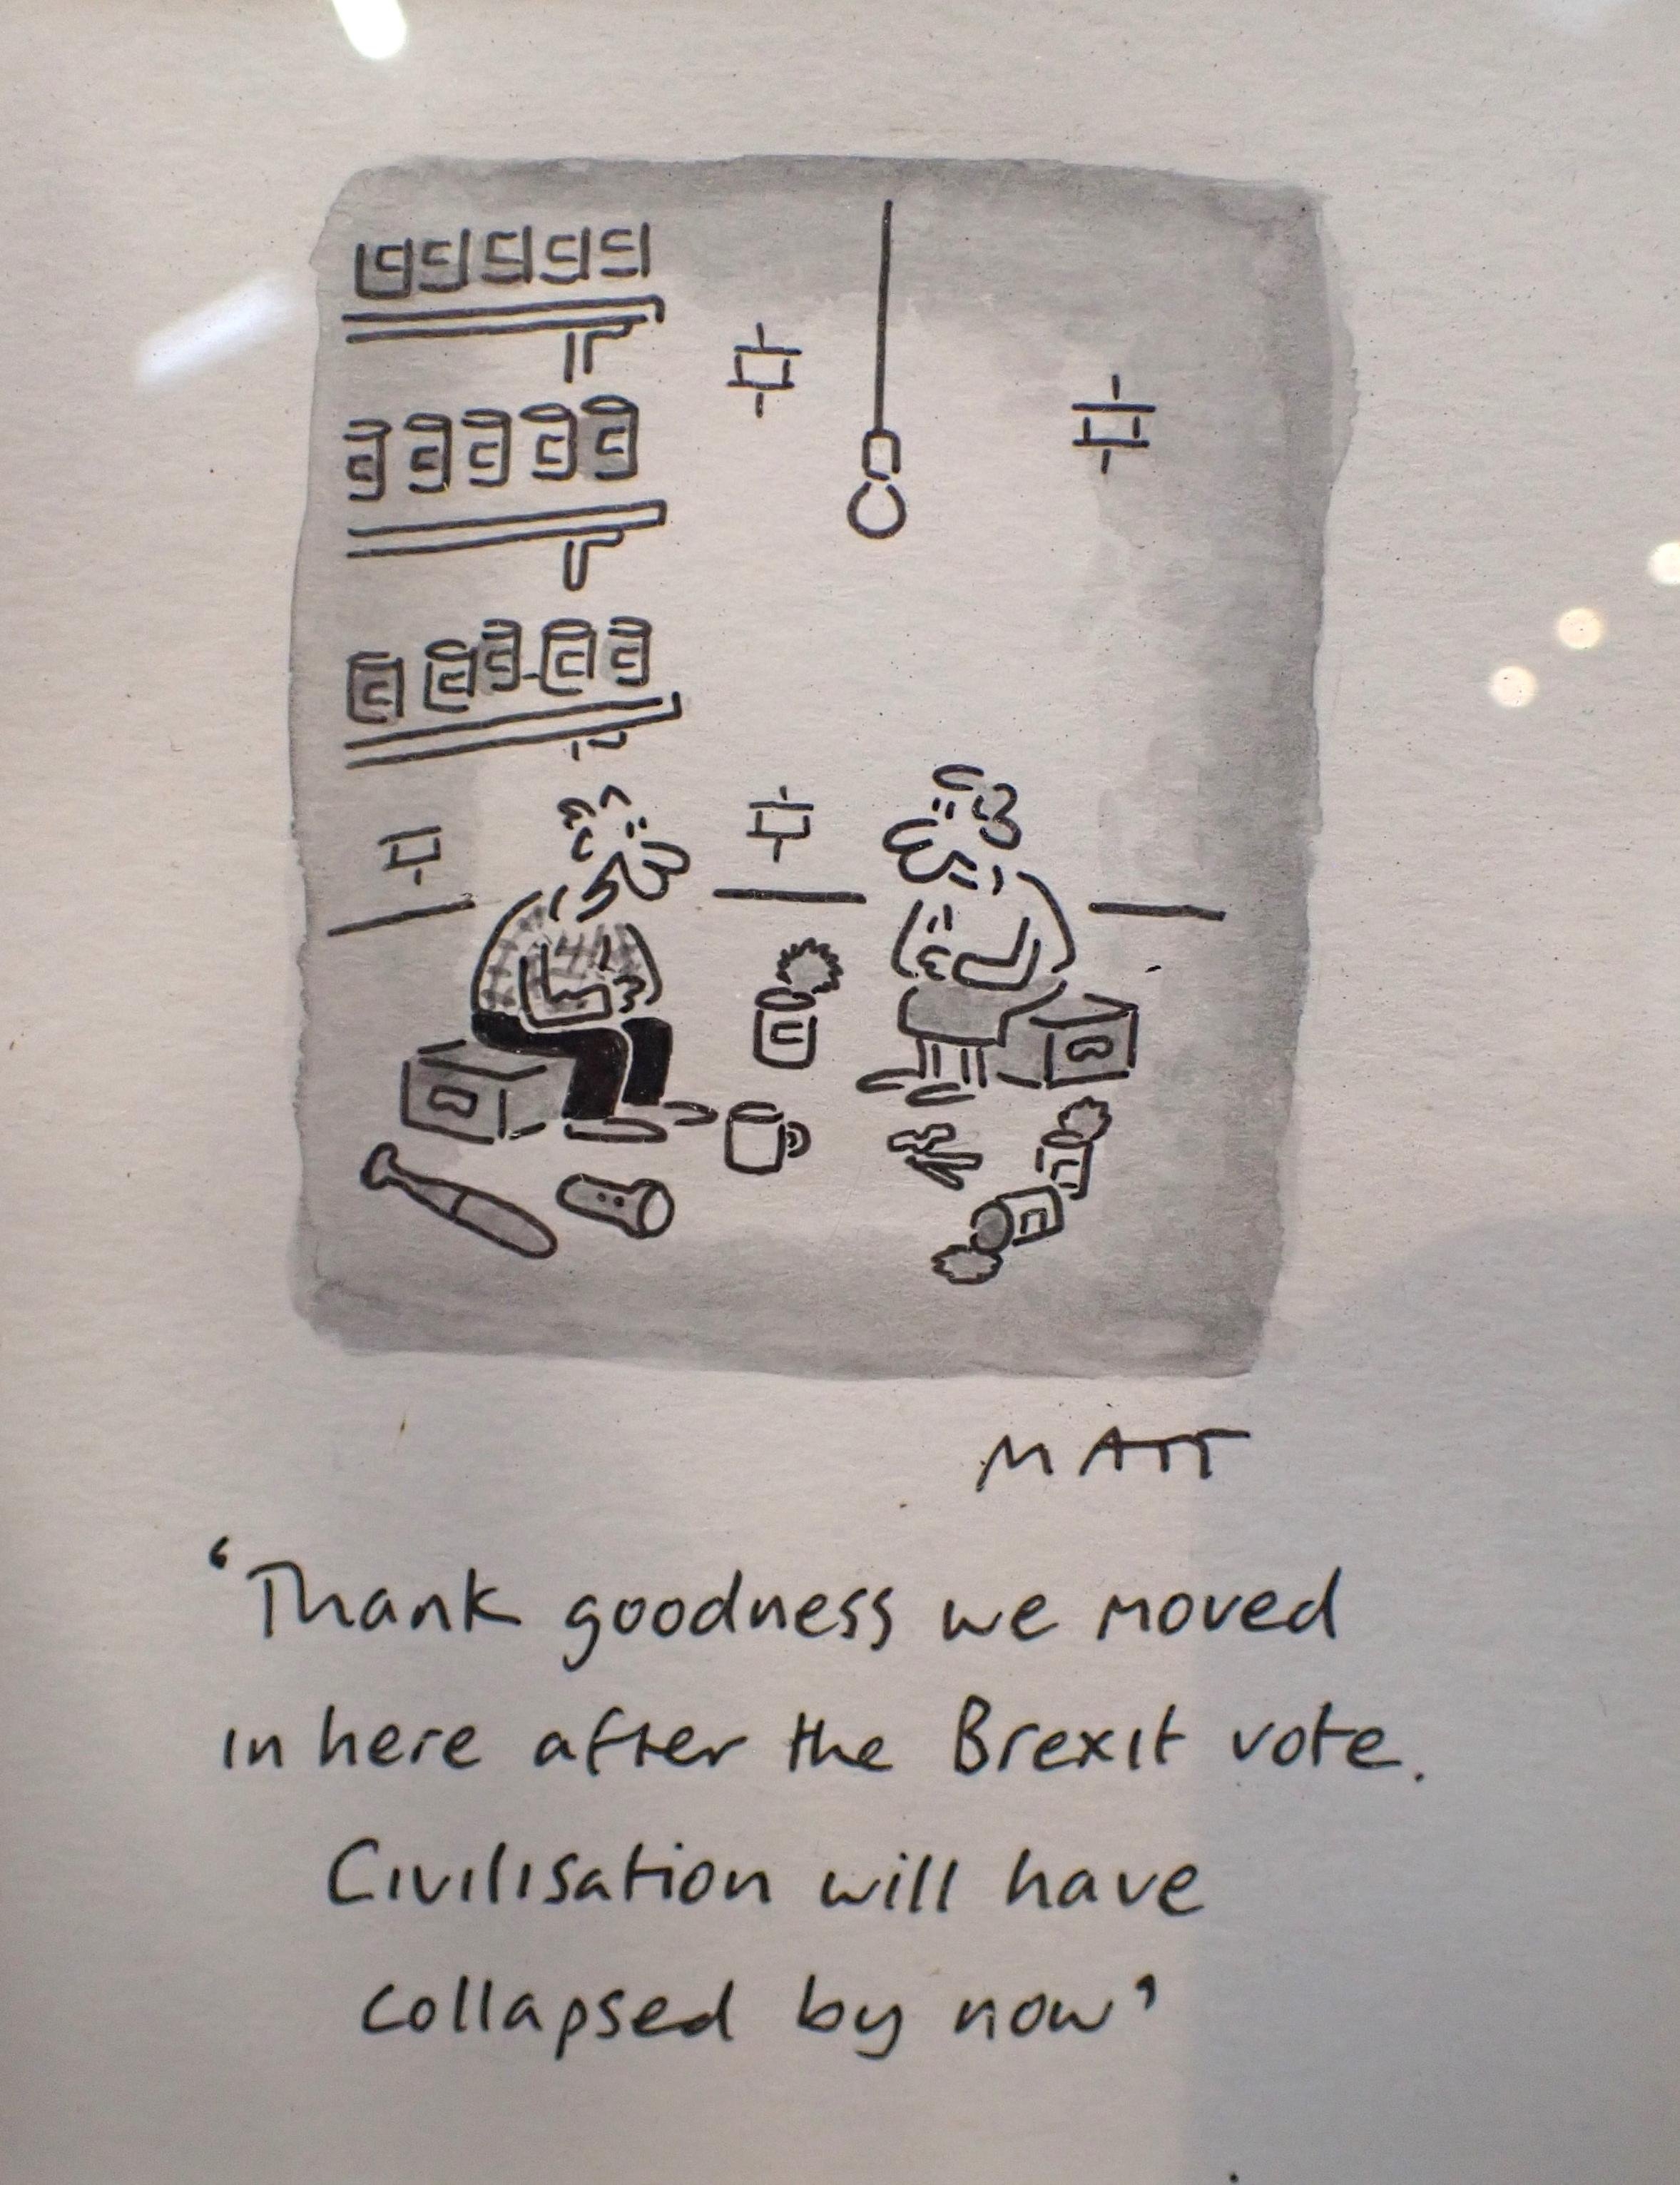 MATT
‘Thank goodness we moved
in here after the Brexit vote.
Civilisation will have
collapsed by now’